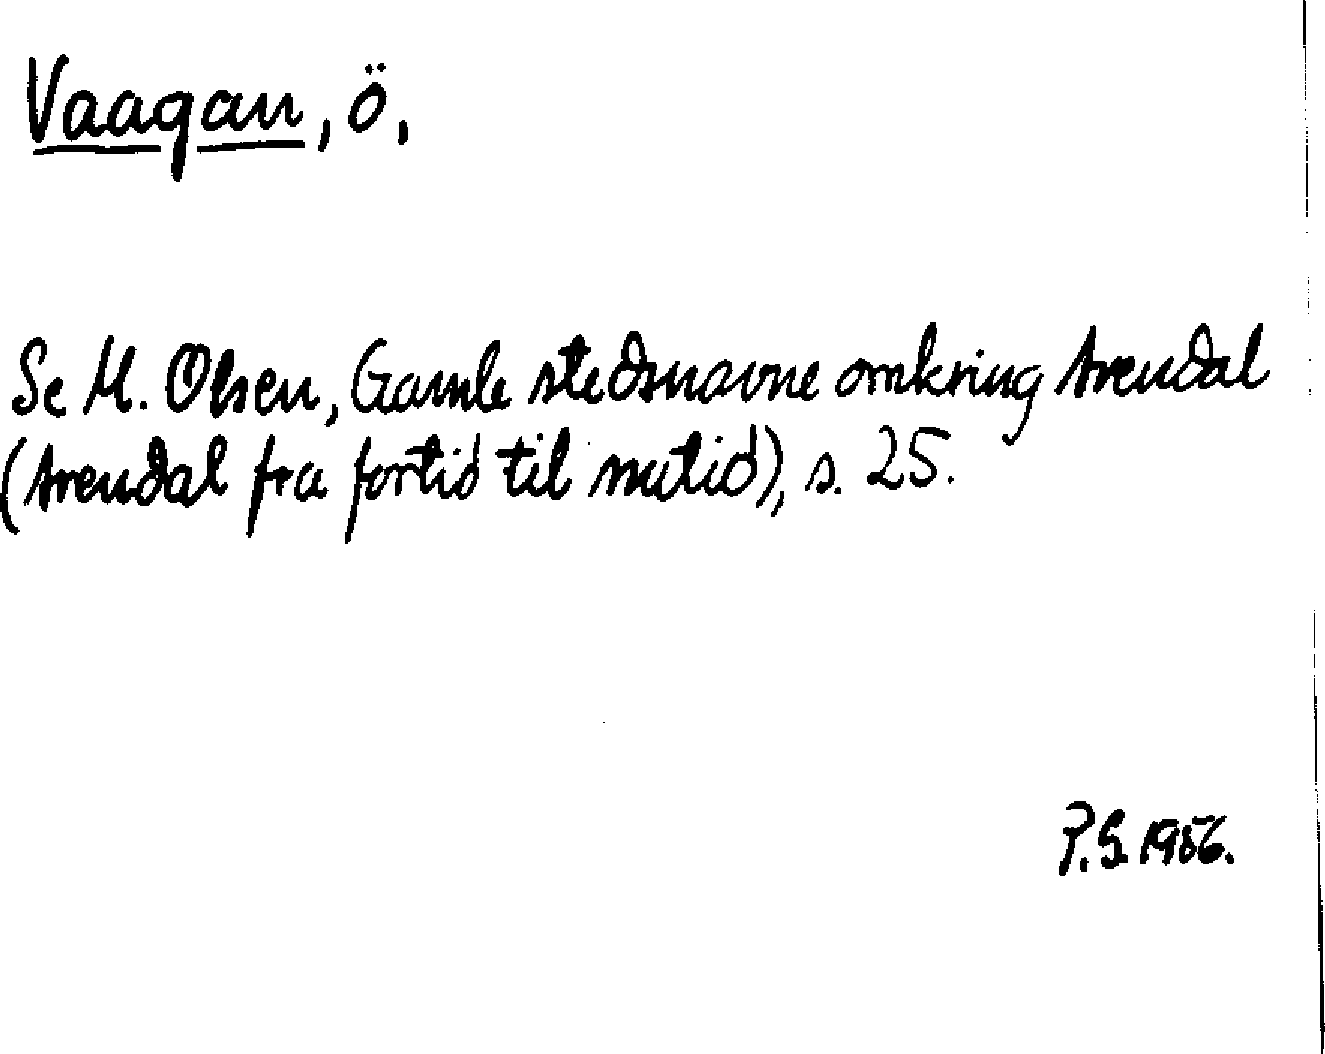 Vaagan, ö.
Se M. Olsen, Gamle stedsnavne omkring Arendal
(Arendal fra fortid til nutid), s. 25.
P.S. 1956.